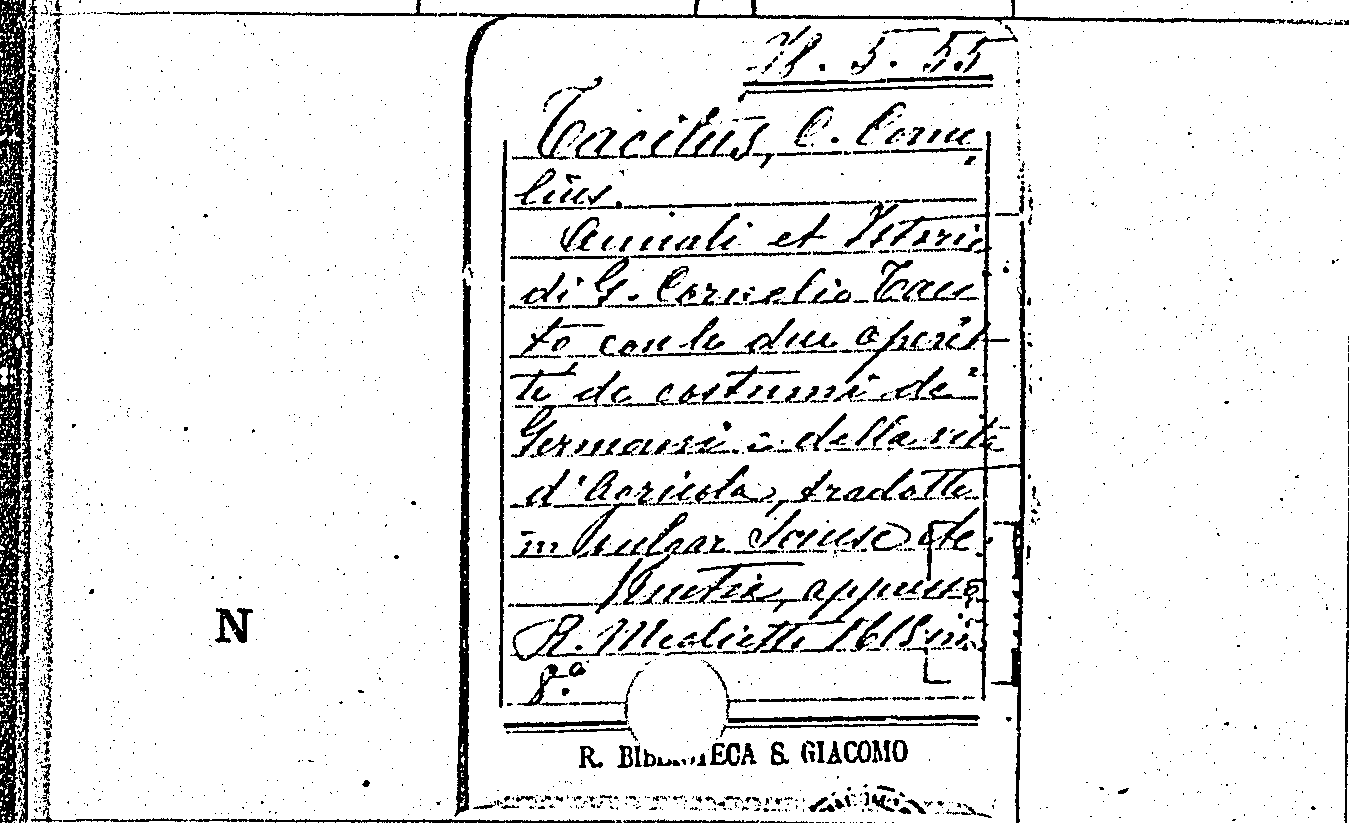 H. 5. 55
Tacitus, C. Corne
lius.
Annali et Istorie
di G. Cornelio Taci
to con le due operet
te de costumi de'
Germani e della vita
d'Agricola, tradotte
in vulgar Senese etc.
Venetia, appresso
R. Medietti 1618 in
8.º
N
R. BIBLIOTECA S. GIACOMO